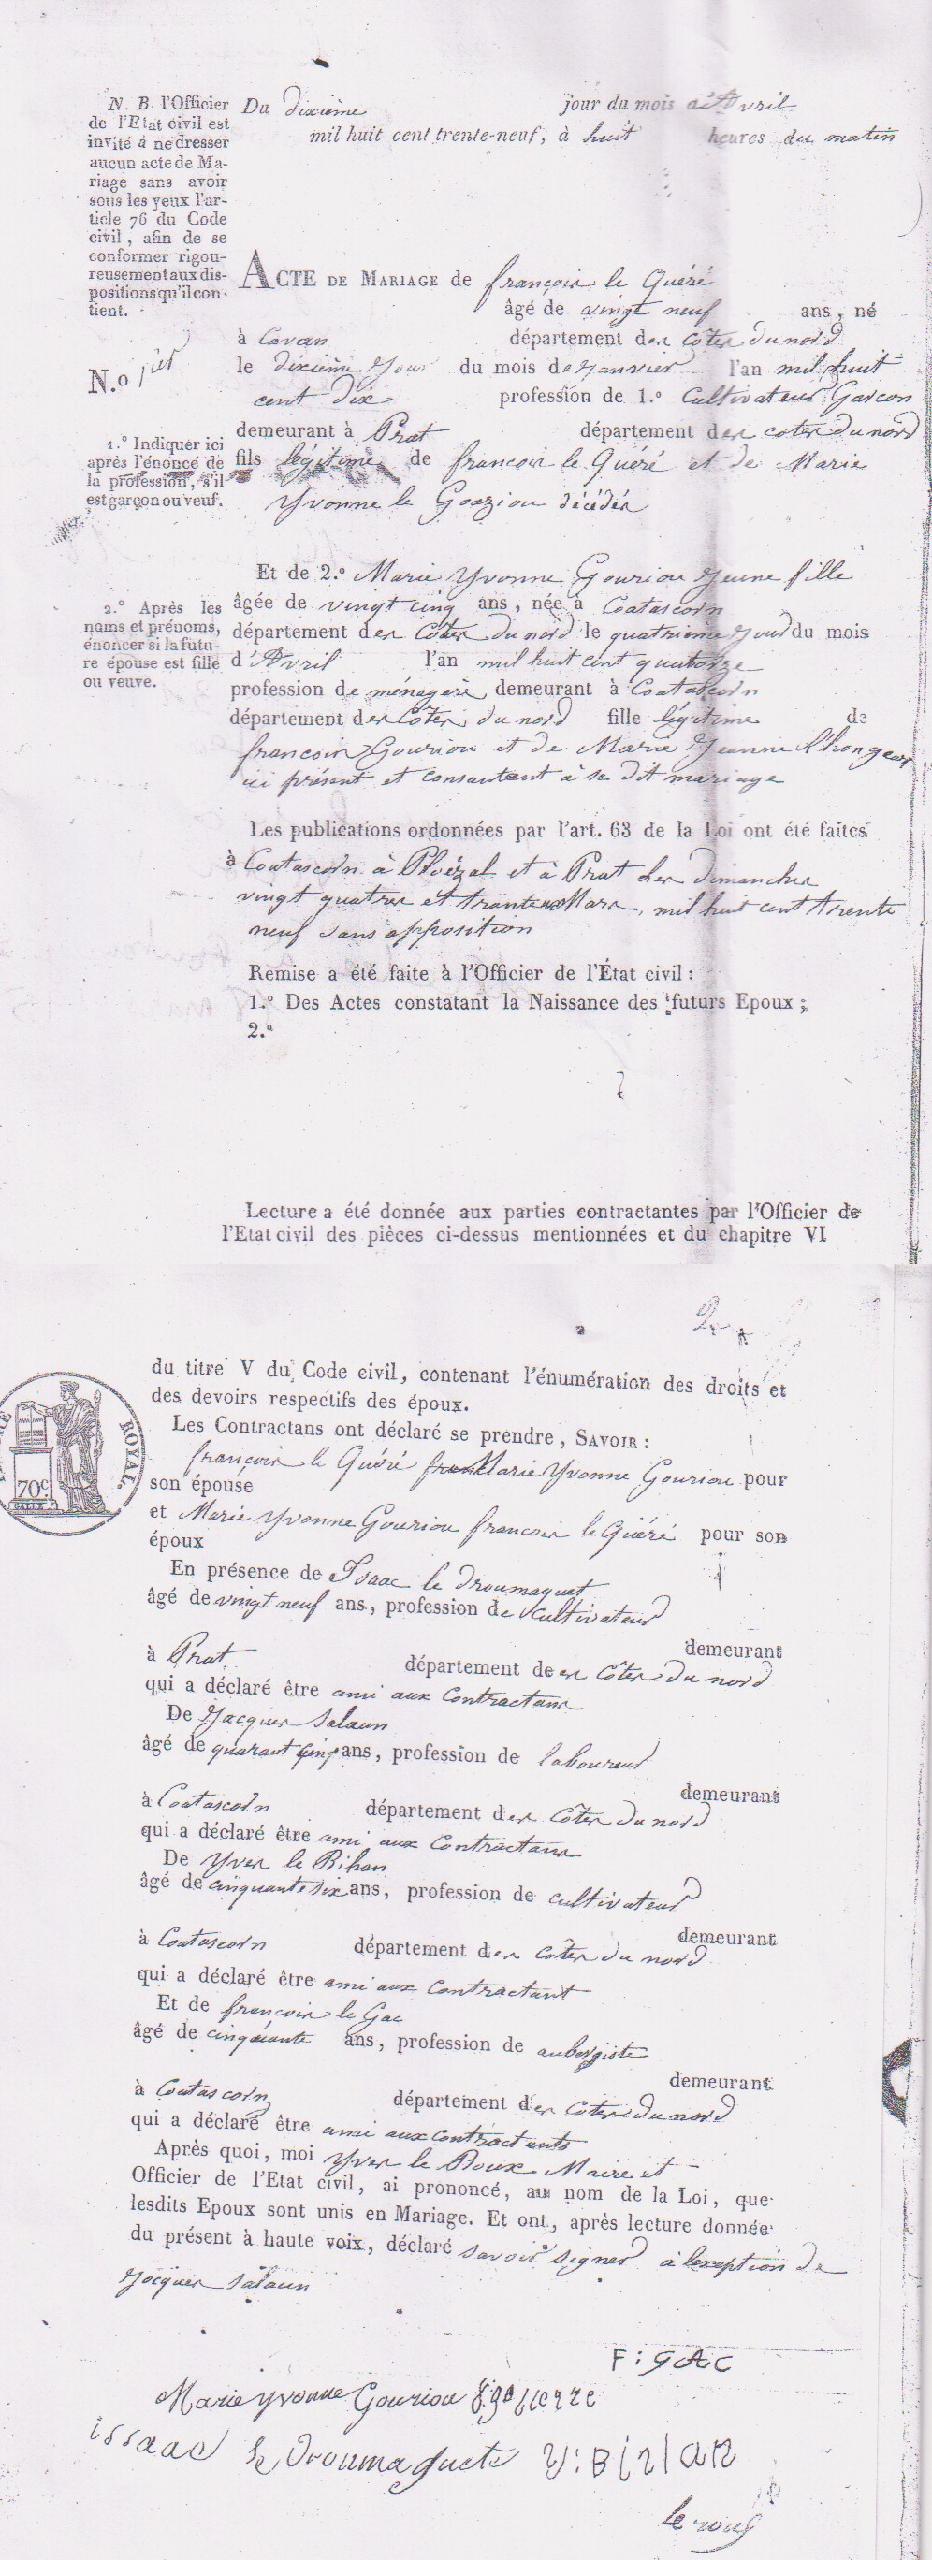 N. B. l'Officier
de l'Etat civil est
invité à ne dresser
aucun acte de Ma-
riage sans avoir
sous les yeux l'ar-
ticle 76 du Code
civil, afin de se
conformer rigou-
reusement aux dis-
positions qu'il con-
tient.
N.o 1er
1.° Indiquer ici
après l'énoncé de
la profession, s'il
est garçon ou veuf.
2.° Après les
noms et prénoms,
énoncer si la futu-
re épouse est fille
ou veuve.
Du dixième jour du mois d'Avril
mil huit cent trente-neuf, à huit heures du matin
ACTE DE MARIAGE de françois le Quéré
âgé de vingt neuf ans, né
à Cavan département des Côtes du nord
le dixième jour du mois de janvier l'an mil huit
cent dix profession de 1.° Cultivateur Garcon
demeurant à Prat département des cotes du nord
fils légitime de francois le Quéré et de Marie
Yvonne le Goaziou décédés
Et de 2.° Marie Yvonne Gouriou jeune fille
âgée de vingt cinq ans, née à Coatascorn
département des Côtes du nord le quatrième jour du mois
d'Avril l'an mil huit cent quatorze
profession de ménagère demeurant à Coatascorn
département des Côtes du nord fille légitime de
francois Gouriou et de Marie Jeanne
ici présent et consentant à se dit mariage
Les publications ordonnées par l'art. 63 de la Loi ont été faites
à Coatascorn à Ploëzal et à Prat les dimanches
vingt quatre et trante Mars, mil huit cent trente
neuf sans opposition
Remise a été faite à l'Officier de l'État civil :
1.° Des Actes constatant la Naissance des futurs Epoux ;
2.°
Lecture a été donnée aux parties contractantes par l'Officier de
l'Etat civil des pièces ci-dessus mentionnées et du chapitre VI
du titre V du Code civil, contenant l'énumération des droits et
des devoirs respectifs des époux.
ROYAL.
70c
Les Contractans ont déclaré se prendre, SAVOIR :
françois le Quéré Marie Yvonne Gouriou pour
son épouse
et Marie Yvonne Gouriou francois le Quéré pour son
époux
En présence de Isaac le droumaguet
âgé de vingt neuf ans, profession de cultivateur
demeurant
à Prat département des côtes du nord
qui a déclaré être ami aux Contractans
De Jacques Salaun
âgé de quarant cinq ans, profession de laboureur
demeurant
à Coatascorn département des Côtes du nord
qui a déclaré être ami aux Contractans
De Yves le Bihan
âgé de cinquante six ans, profession de cultivateur
demeurant
à Coatascorn département des côtes du nord
qui a déclaré être ami aux contractant
Et de françois le Gac
âgé de cinquante ans, profession de aubergiste
demeurant
à Coatascorn département des Côtes du nord
qui a déclaré être ami aux contractants
Après quoi, moi Yves le Roux Maire et
Officier de l'Etat civil, ai prononcé, au nom de la Loi, que
lesdits Epoux sont unis en Mariage. Et ont, après lecture donnée
du présent à haute voix, déclaré savoir signer à l'exception de
Jacques Salaun
F : GAC
Marie yvonne Gouriou
issaac le Droumaguete Y : BIHAN
le roux